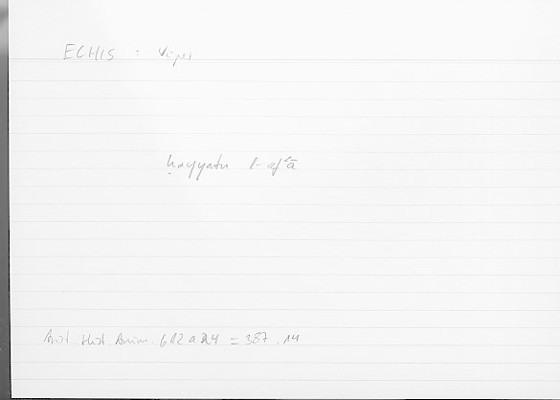 ECHIS : Viper
ḥayyatu l-afʿā
Arist. Hist. Anim. 612 a 24 = 387.14